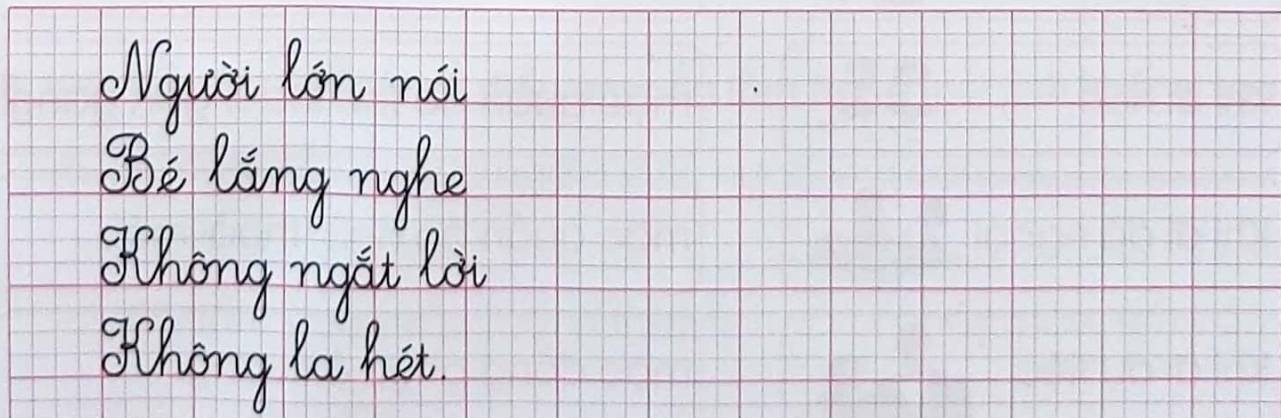 Người lớn nói
Bé lắng nghe
Không ngắt lời
Không la hét.